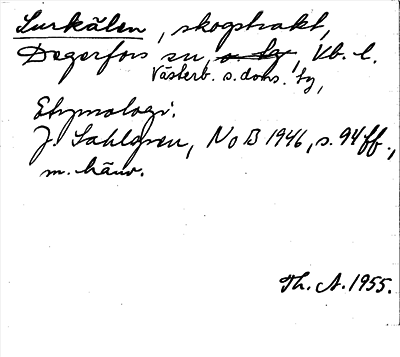 Lurkälen, skogstrakt,
Degerfors sn, o. tg, Vb. l.
Västerb. s. doms. tg,
Etymologi.
J. Sahlgren, NoB 1946, s. 94 ff.,
m. hänv.
Th. A. 1955.